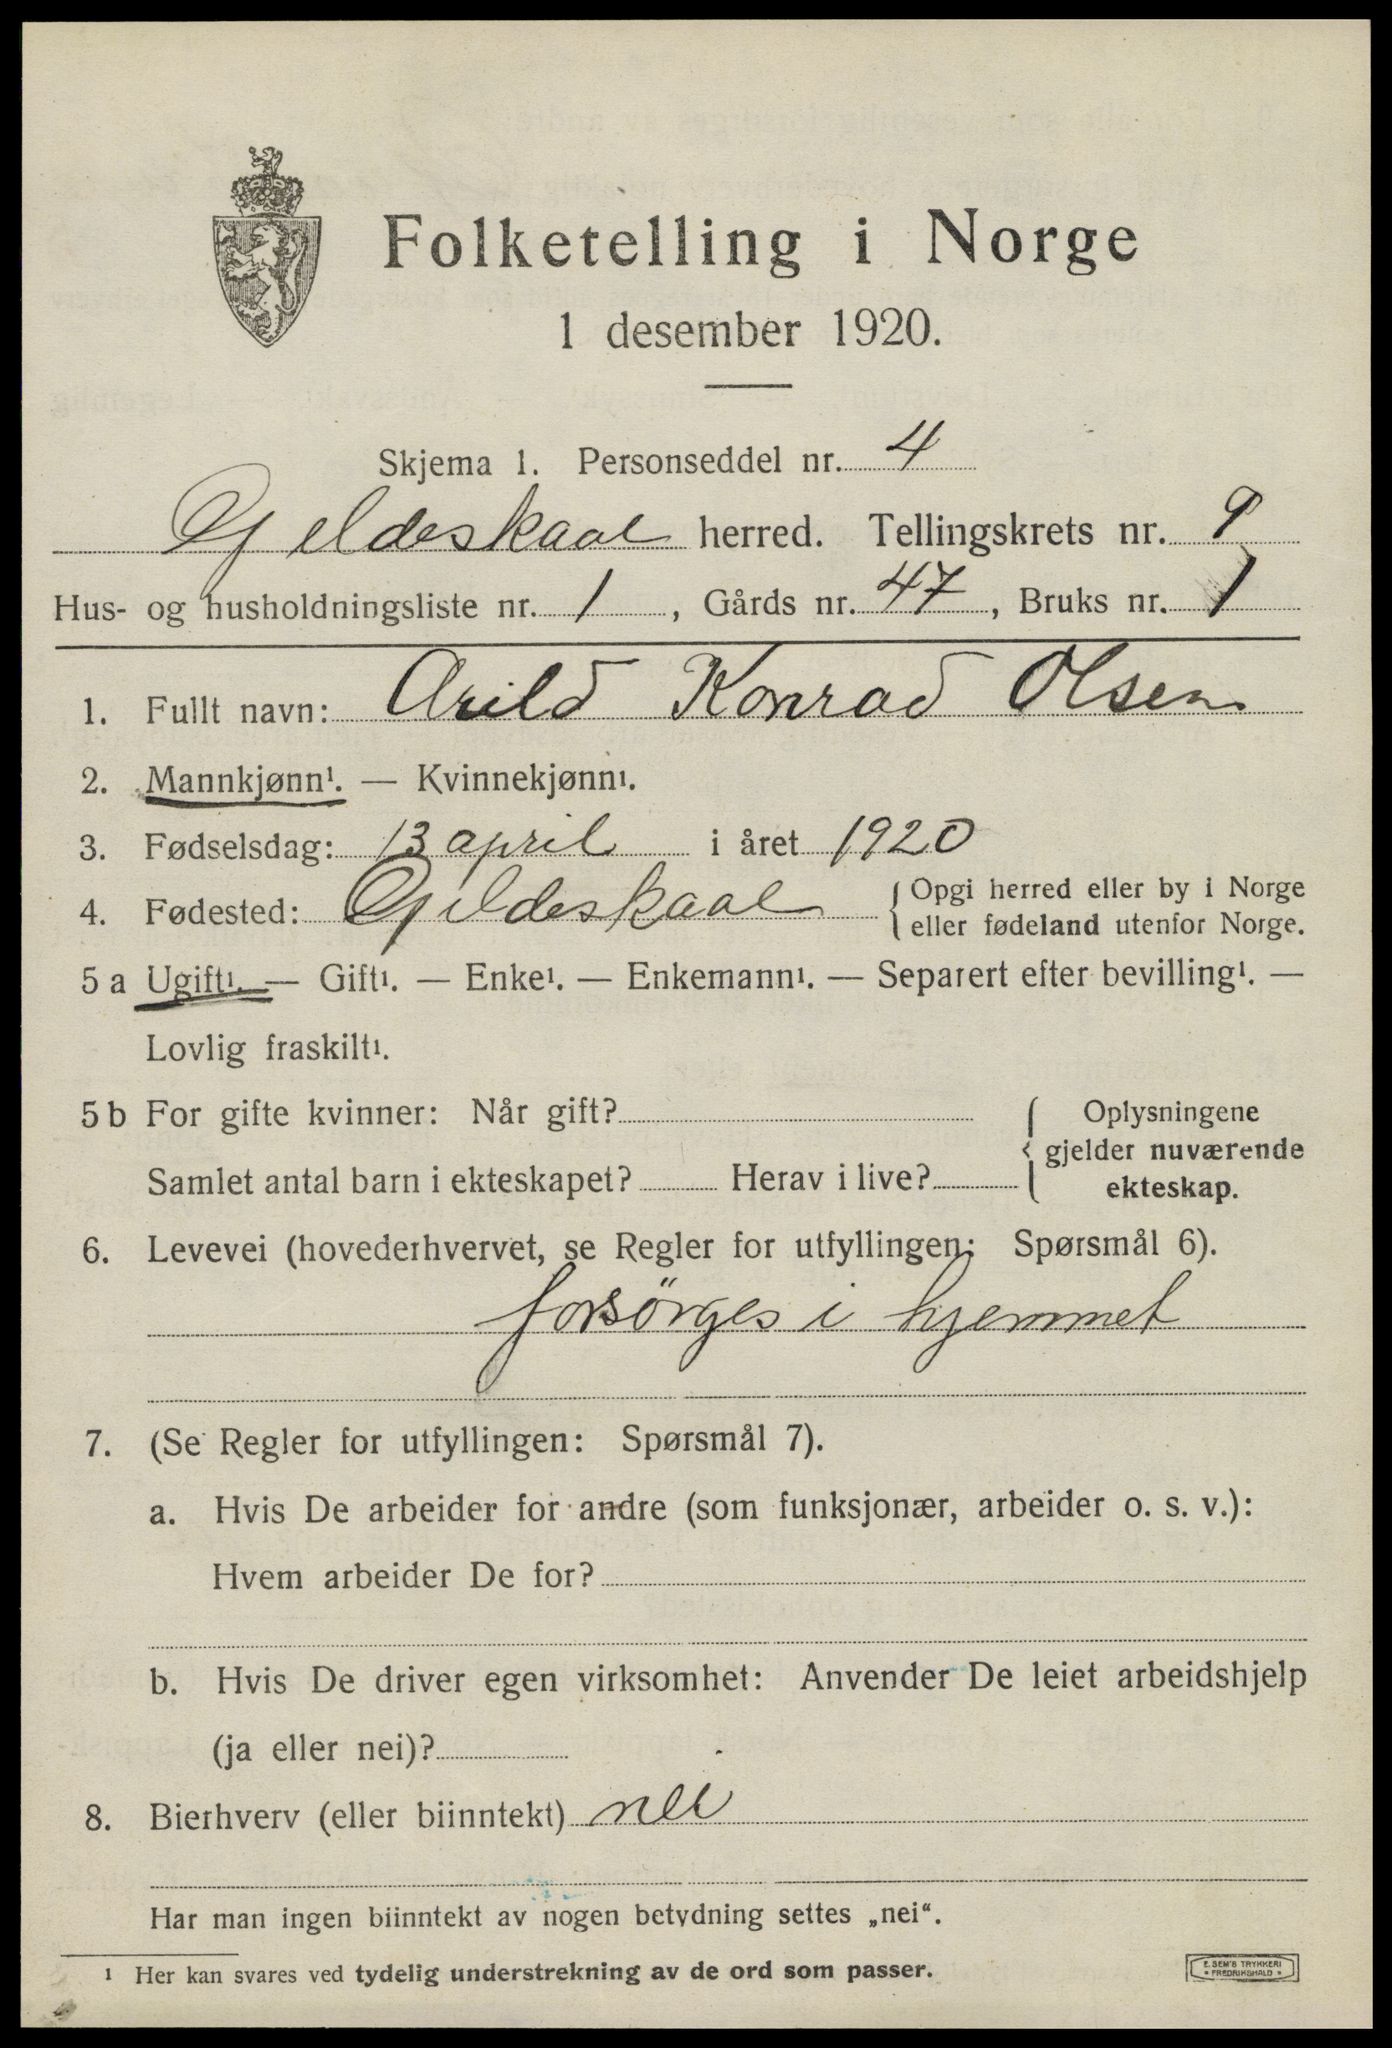 Folketelling i Norge
1 desember 1920.
Skjema 1. Personseddel nr. 4
Gildeskaal herred. Tellingskrets nr. 9
Hus- og husholdningsliste nr. 1, Gårds nr. 47, Bruks nr. 1
1. Fullt navn: Arild Konrad Olsen
2. Mannkjønn¹. — Kvinnekjønn¹.
3. Fødselsdag: 13 april i året 1920
4. Fødested: Gildeskaal { Opgi herred eller by i Norge
eller fødeland utenfor Norge.
5 a Ugift¹. — Gift¹. — Enke¹. — Enkemann¹. — Separert efter bevilling¹. —
Lovlig fraskilt¹.
5 b For gifte kvinner: Når gift? { Oplysningene
gjelder nuværende
Samlet antal barn i ekteskapet? Herav i live? ekteskap.
6. Levevei (hovederhvervet, se Regler for utfyllingen: Spørsmål 6).
forsörges i hjemmet
7. (Se Regler for utfyllingen: Spørsmål 7).
a. Hvis De arbeider for andre (som funksjonær, arbeider o. s. v.):
Hvem arbeider De for?
b. Hvis De driver egen virksomhet: Anvender De leiet arbeidshjelp
(ja eller nei)?
8. Bierhverv (eller biinntekt) nei
Har man ingen biinntekt av nogen betydning settes „nei“.
¹ Her kan svares ved tydelig understrekning av de ord som passer.
E. SEM'S TRYKKERI
FREDRIKSHALD